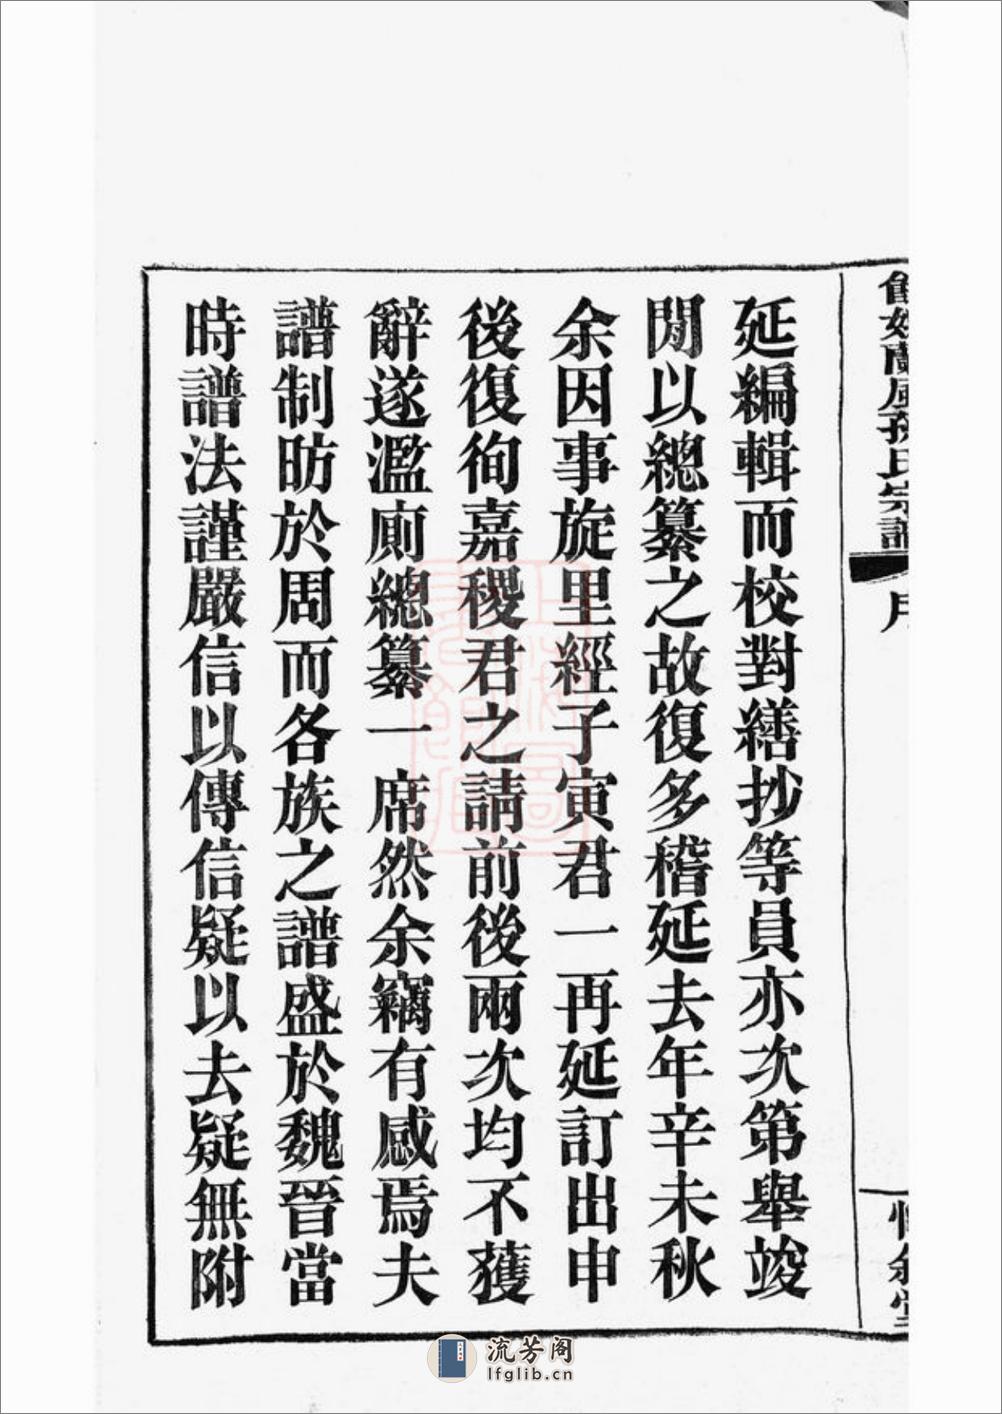 舊姚蘭風孫氏宗譜
序
延編輯而校對繕抄等員亦次第舉竣
閒以總纂之故復多稽延去年辛未秋
余因事旋里經子寅君一再延訂出申
後復徇嘉稷君之請前後兩次均不獲
辭遂濫廁總纂一席然余竊有感焉夫
譜制昉於周而各族之譜盛於魏晉當
時譜法謹嚴信以傳信疑以去疑無附
流芳阁
lfglib.cn